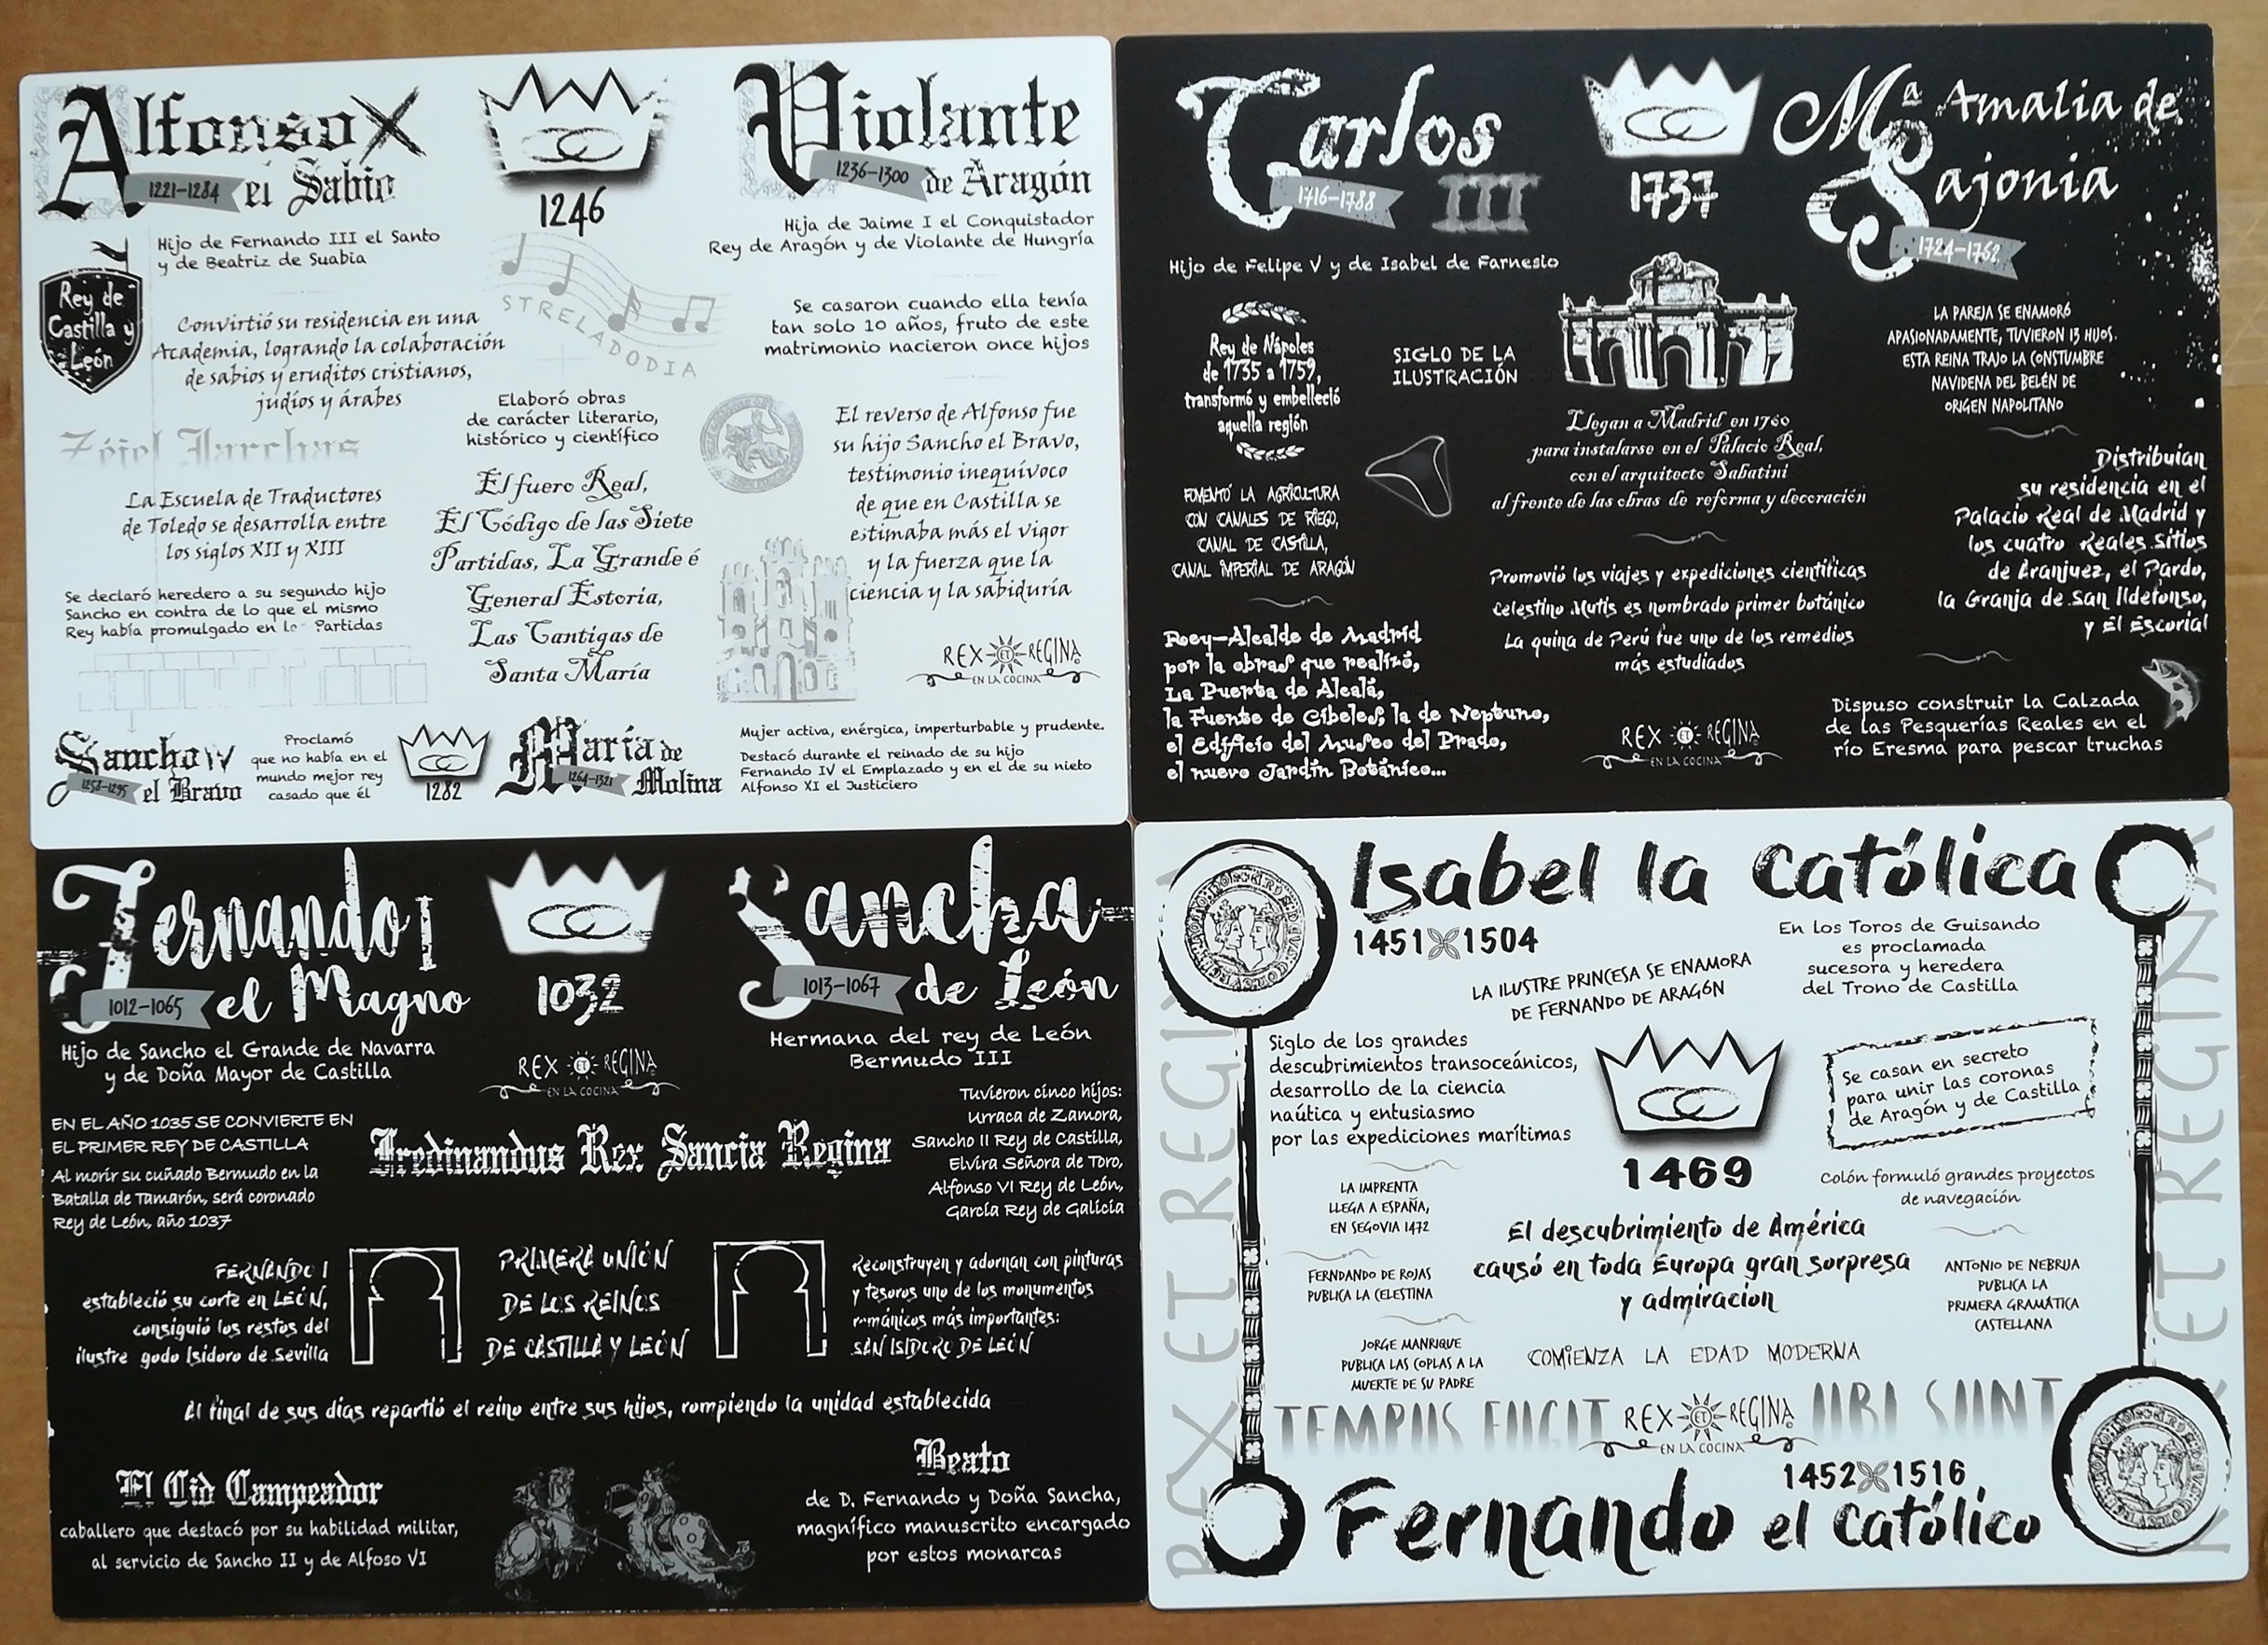 Alfonso X
1221-1284 el Sabio
Hijo de Fernando III el Santo
y de Beatriz de Suabia
Rey de
Castilla y
León
Convirtió su residencia en una
Academia, logrando la colaboración
de sabios y eruditos cristianos,
judíos y árabes
Zéjel Jarchas
La Escuela de Traductores
de Toledo se desarrolla entre
los siglos XII y XIII
Se declaró heredero a su segundo hijo
Sancho en contra de lo que el mismo
Rey había promulgado en Partidas
1246
STRELADODIA
Elaboró obras
de carácter literario,
histórico y científico
El fuero Real,
El Código de las Siete
Partidas, La Grande é
General Estoria,
Las Cantigas de
Santa María
Violante
1236-1300 de Aragón
Hija de Jaime I el Conquistador
Rey de Aragón y de Violante de Hungría
Se casaron cuando ella tenía
tan solo 10 años, fruto de este
matrimonio nacieron once hijos
El reverso de Alfonso fue
su hijo Sancho el Bravo,
testimonio inequívoco
de que en Castilla se
estimaba más el vigor
y la fuerza que la
ciencia y la sabiduría
REX ET REGINA
EN LA COCINA
Sancho IV
1258-1295 el Bravo
Proclamó
que no había en el
mundo mejor rey
casado que él
1282
María de
1264-1321 Molina
Mujer activa, enérgica, imperturbable y prudente.
Destacó durante el reinado de su hijo
Fernando IV el Emplazado y en el de su nieto
Alfonso XI el Justiciero
Carlos
1716-1788 III
Hijo de Felipe V y de Isabel de Farnesio
Rey de Nápoles
de 1735 a 1759,
transformó y embelleció
aquella región
SIGLO DE LA
ILUSTRACIÓN
FOMENTÓ LA AGRICULTURA
CON CANALES DE RIEGO,
CANAL DE CASTILLA,
CANAL IMPERIAL DE ARAGÓN
Rey-Alcalde de Madrid
por la obras que realizó,
La Puerta de Alcalá,
la Fuente de Cibeles, la de Neptuno,
el Edificio del Museo del Prado,
el nuevo Jardín Botánico...
1737
Llegan a Madrid en 1760
para instalarse en el Palacio Real,
con el arquitecto Sabatini
al frente de las obras de reforma y decoración
Promovió los viajes y expediciones científicas
Celestino Mutis es nombrado primer botánico
La quina de Perú fue uno de los remedios
más estudiados
REX ET REGINA
EN LA COCINA
Mª Amalia de
Sajonia
1724-1762
LA PAREJA SE ENAMORÓ
APASIONADAMENTE, TUVIERON 13 HIJOS.
ESTA REINA TRAJO LA CONSTUMBRE
NAVIDENA DEL BELÉN DE
ORIGEN NAPOLITANO
Distribuian
su residencia en el
Palacio Real de Madrid y
los cuatro Reales Sitios
de Aranjuez, el Pardo,
la Granja de San Ildefonso,
y El Escorial
Dispuso construir la Calzada
de las Pesquerías Reales en el
río Eresma para pescar truchas
Fernando I
1012-1065 el Magno
Hijo de Sancho el Grande de Navarra
y de Doña Mayor de Castilla
1032
REX ET REGINA
EN LA COCINA
Sancha
1013-1067 de León
Hermana del rey de León
Bermudo III
EN EL AÑO 1035 SE CONVIERTE EN
EL PRIMER REY DE CASTILLA
Al morir su cuñado Bermudo en la
Batalla de Tamarón, será coronado
Rey de León, año 1037
Fredinandus Rex Sancia Regina
Tuvieron cinco hijos:
Urraca de Zamora,
Sancho II Rey de Castilla,
Elvira Señora de Toro,
Alfonso VI Rey de León,
García Rey de Galicia
FERNANDO I
estableció su corte en LEÓN,
consiguió los restos del
ilustre godo Isidoro de Sevilla
PRIMERA UNIÓN
DE LOS REINOS
DE CASTILLA Y LEÓN
Reconstruyen y adornan con pinturas
y tesoros uno de los monumentos
románicos más importantes:
SAN ISIDORO DE LEÓN
Al final de sus dias repartió el reino entre sus hijos, rompiendo la unidad establecida
El Cid Campeador
caballero que destacó por su habilidad militar,
al servicio de Sancho II y de Alfoso VI
Beato
de D. Fernando y Doña Sancha,
magnífico manuscrito encargado
por estos monarcas
Isabel la Católica
1451 1504
LA ILUSTRE PRINCESA SE ENAMORA
DE FERNANDO DE ARAGÓN
En los Toros de Guisando
es proclamada
sucesora y heredera
del Trono de Castilla
Siglo de los grandes
descubrimientos transoceánicos,
desarrollo de la ciencia
naútica y entusiasmo
por las expediciones marítimas
1469
Se casan en secreto
para unir las coronas
de Aragón y de Castilla
Colón formuló grandes proyectos
de navegación
LA IMPRENTA
LLEGA A ESPAÑA,
EN SEGOVIA 1472
FERNDANDO DE ROJAS
PUBLICA LA CELESTINA
JORGE MANRIQUE
PUBLICA LAS COPLAS A LA
MUERTE DE SU PADRE
El descubrimiento de América
causó en toda Europa gran sorpresa
y admiracion
ANTONIO DE NEBRIJA
PUBLICA LA
PRIMERA GRAMÁTICA
CASTELLANA
COMIENZA LA EDAD MODERNA
TEMPUS FUGIT
REX ET REGINA
EN LA COCINA
UBI SUNT
1452 1516
Fernando el Católico
REX ET REGINA
REX ET REGINA